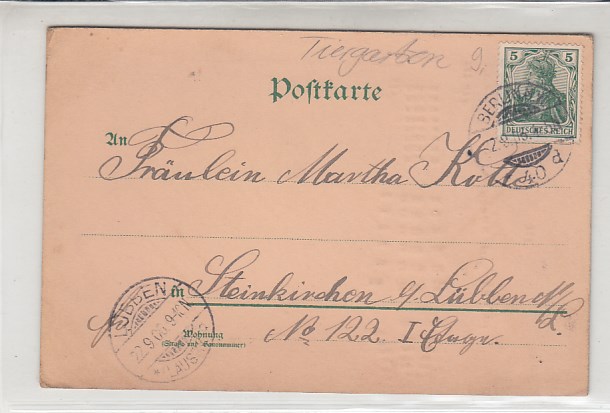 Tiergarten 9.
5 5
DEUTSCHES REICH
Postkarte
BERLIN
40 d
An
Fräulein Martha Kolls
in Steinkirchen b/Lübben N/L.
Wohnung
(Straße und Hausnummer)
No 122. I Etage.
LÜBBEN
22.9.05. 9-10V
* (LAUSITZ)